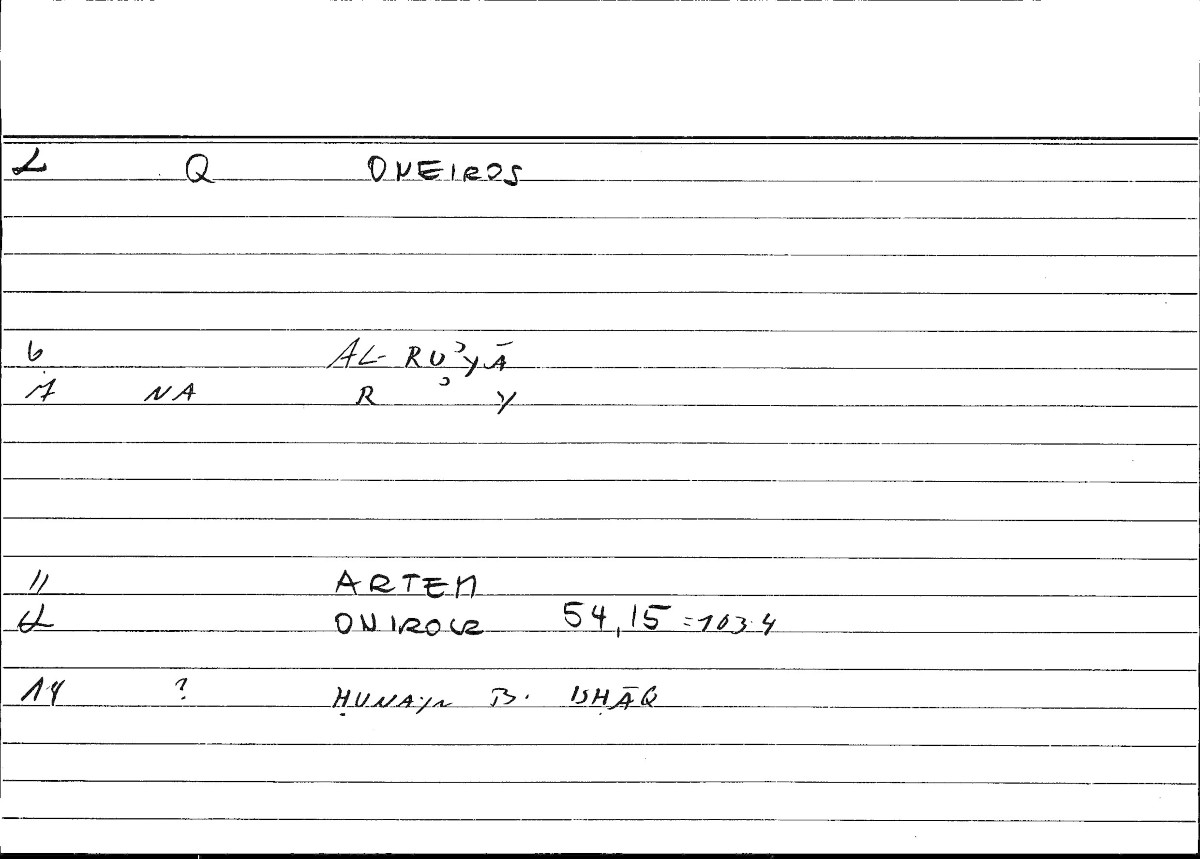 2 Q ONEIROS
6 AL-RUʾYĀ
7 NA R ʾ Y
11 ARTEM
12 ONIROCR 54,15 = 103.4
14 ? ḤUNAYN B. ISḤĀQ